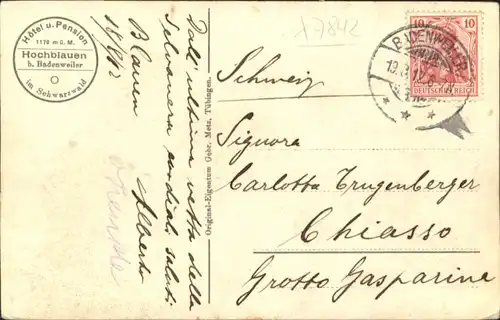 Hôtel u. Pension
1170 m ü. M.
Hochblauen
b. Badenweiler
im Schwarzwald
Blauen
18/9/12
Dall' ultima vetta della
Selvanera cordiali saluti
Alberto
Original-Eigentum Gebr. Metz, Tübingen.
17842
10 10
DEUTSCHES REICH
BADENWEILER
Schweiz
Signora
Carlotta Trugenberger
Chiasso
Grotto Gasparine